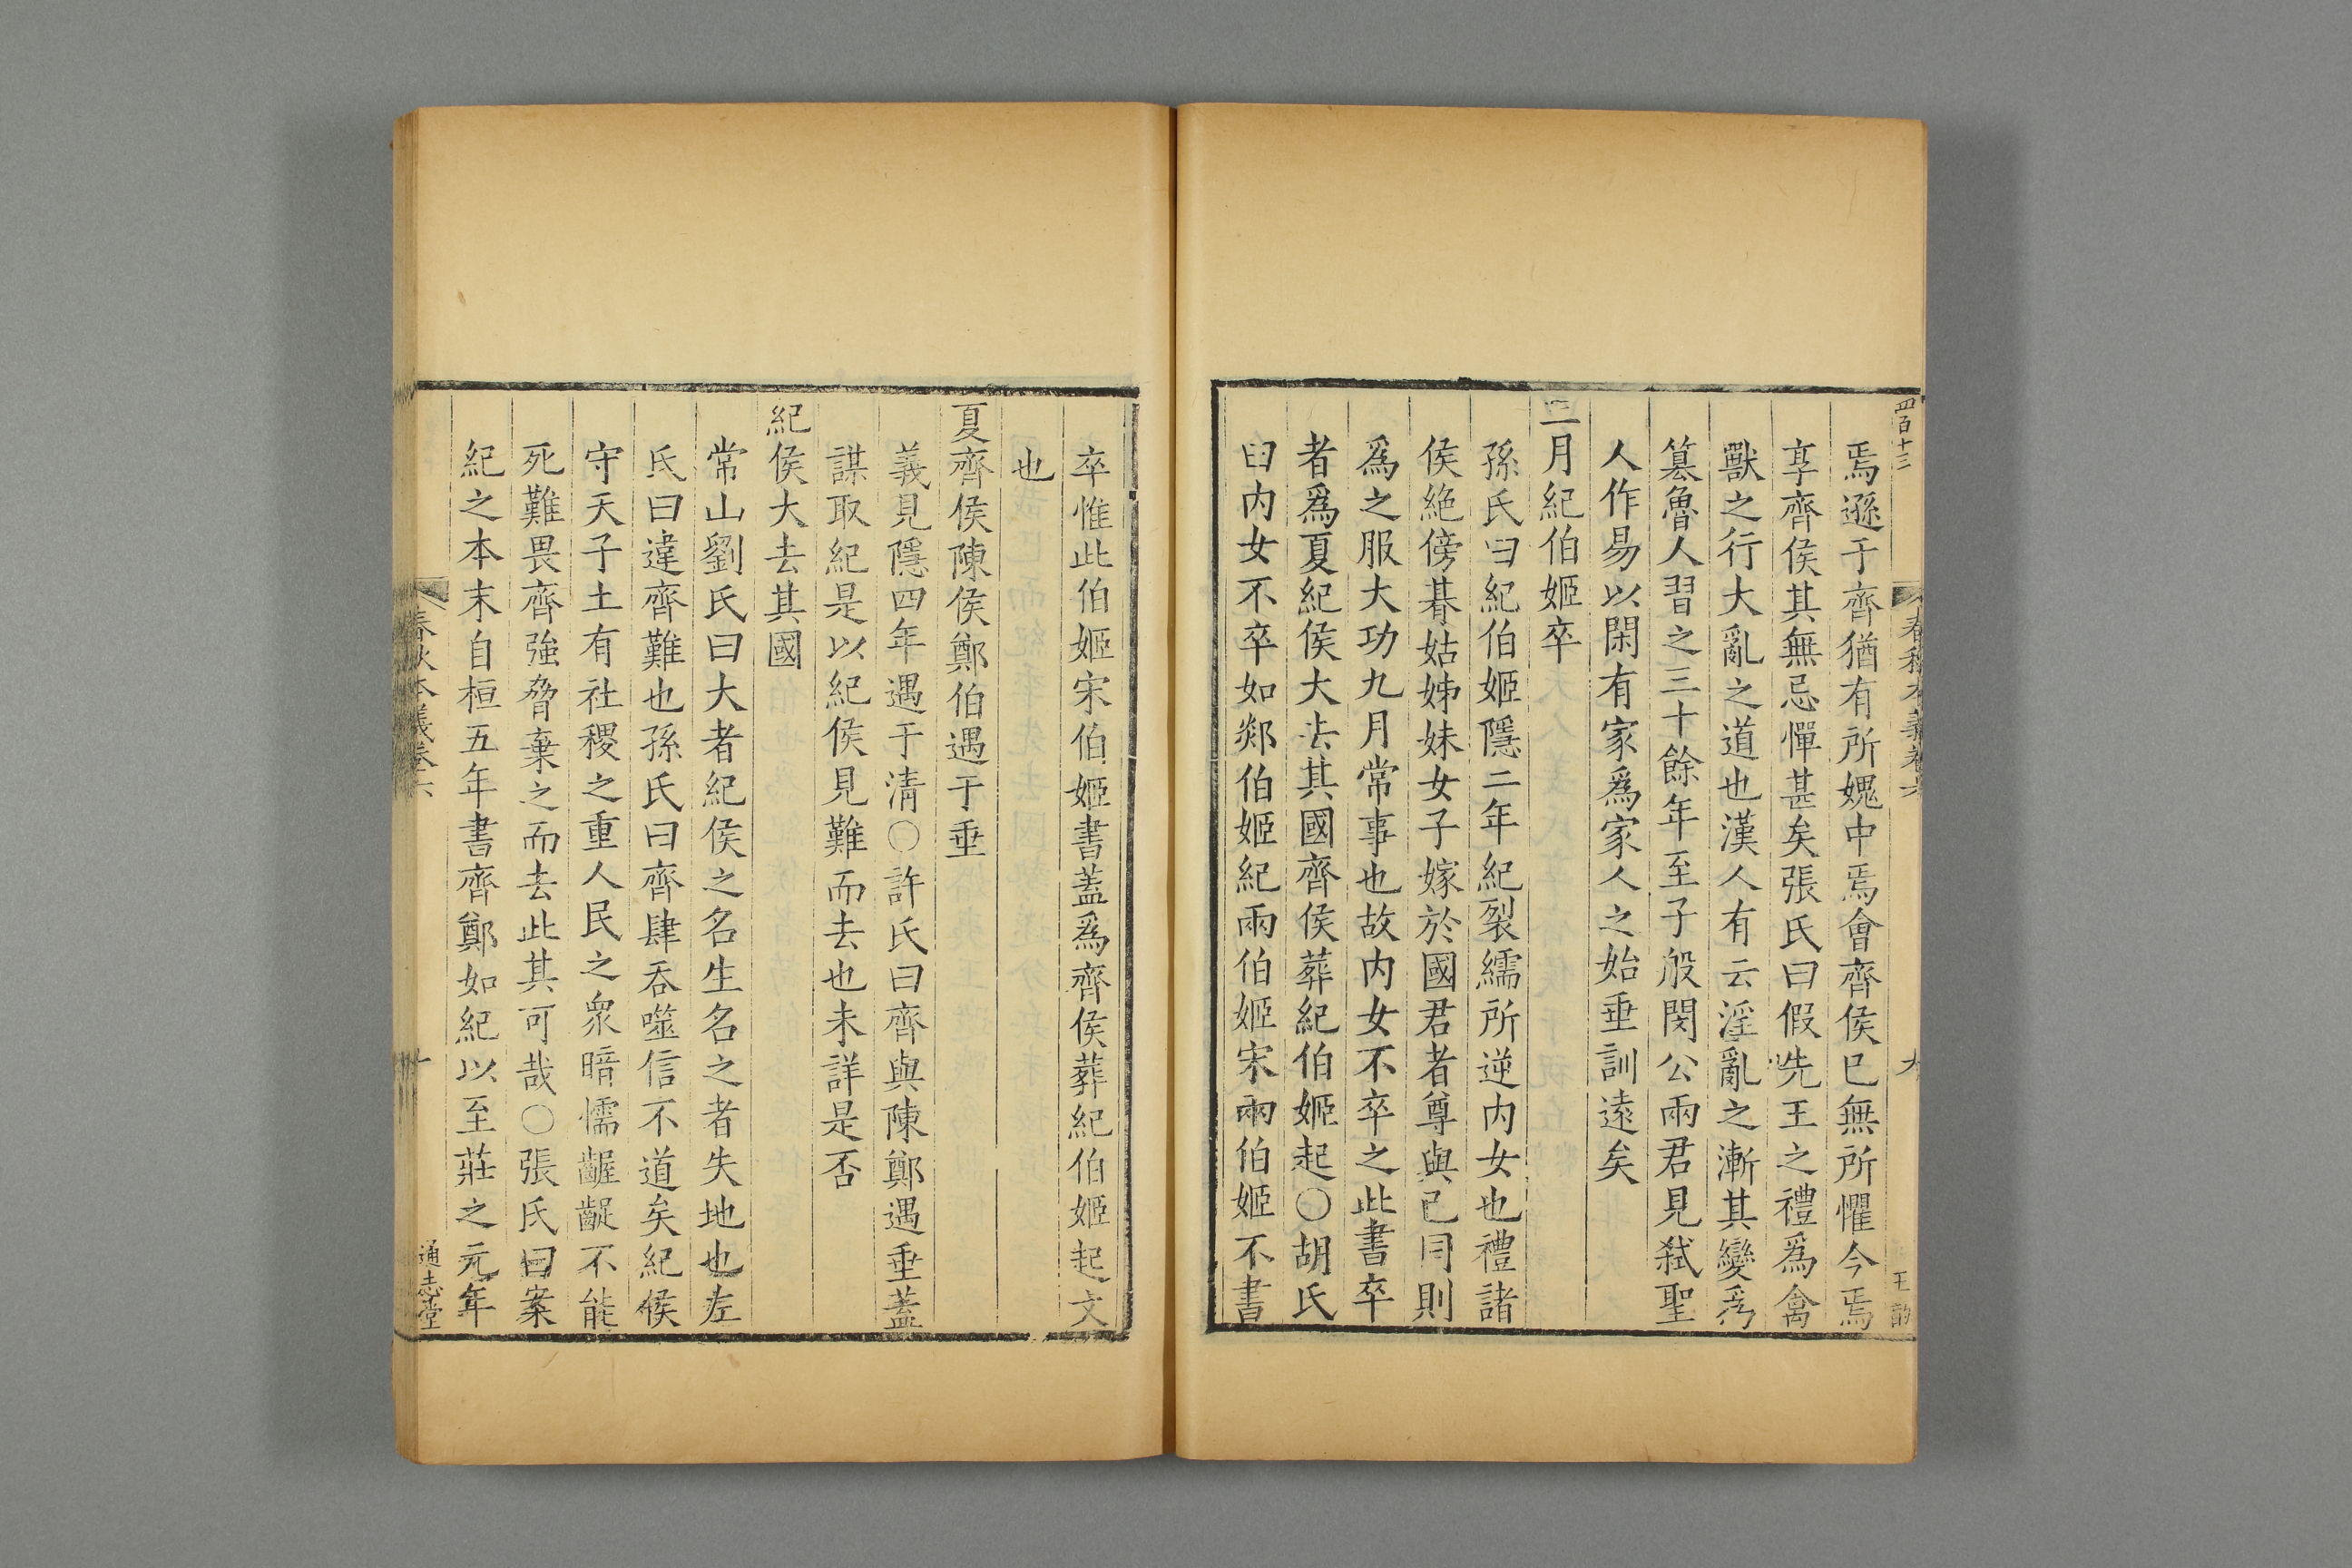 四百十三
春秋本義卷六
九
王
焉遜于齊猶有所媿中焉會齊侯已無所懼今焉
享齊侯其無忌憚甚矣張氏曰假先王之禮爲禽
獸之行大亂之道也漢人有云淫亂之漸其變爲
簒魯人習之三十餘年至子般閔公兩君見弑聖
人作易以閑有家爲家人之始垂訓遠矣
三月紀伯姬卒
孫氏曰紀伯姬隱二年紀裂繻所逆内女也禮諸
侯絶傍朞姑姊妹女子嫁於國君者尊與己同則
爲之服大功九月常事也故内女不卒之此書卒
者爲夏紀侯大去其國齊侯葬紀伯姬起○胡氏
曰内女不卒如郯伯姬紀兩伯姬宋兩伯姬不書
卒惟此伯姬宋伯姬書蓋爲齊侯葬紀伯姬起文
也
夏齊侯陳侯鄭伯遇于垂
義見隱四年遇于清○許氏曰齊與陳鄭遇垂蓋
謀取紀是以紀侯見難而去也未詳是否
紀侯大去其國
常山劉氏曰大者紀侯之名生名之者失地也左
氏曰違齊難也孫氏曰齊肆吞噬信不道矣紀侯
守天子土有社稷之重人民之衆暗懦齷齪不能
死難畏齊強脅棄之而去此其可哉○張氏曰案
紀之本末自桓五年書齊鄭如紀以至莊之元年
春秋本義卷六
十
通志堂